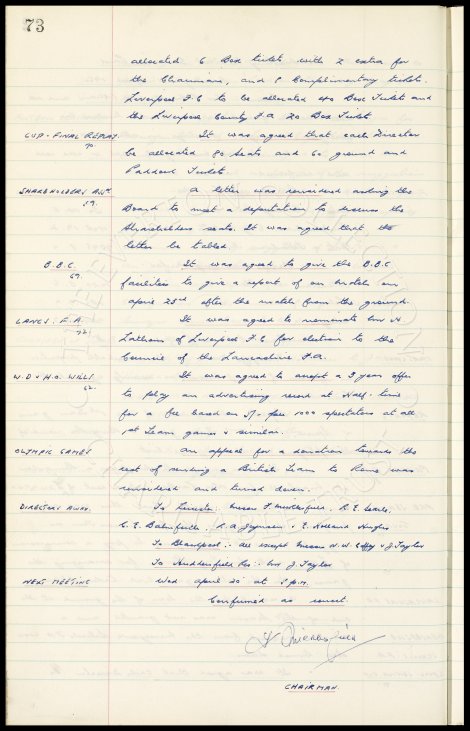 73
allocated 6 Box tickets with 2 extra for
the Chairman, and 8 Complimentary tickets.
Liverpool F.C to be allocated 40 Box Tickets and
the Liverpool County F.A 20 Box Tickets
CUP-FINAL REPLAY. It was agreed that each Director
70.
be allocated 80 Seats and 60 ground and
Paddock Tickets.
SHAREHOLDERS ASSN. A letter was considered asking the
59.
Board to meet a deputation to discuss the
Shareholders seats. It was agreed that the
letter be tabled.
B.B.C. It was agreed to give the B.B.C.
69.
facilities to give a report of our match on
April 23rd after the match from the ground.
LANCS. F.A. It was agreed to nominate Mr
72.
Latham of Liverpool F.C for election to the
Council of the Lancashire F.A.
W.D & H.O. WILLS It was agreed to accept a 3 year offer
62.
to play an advertising record at Half-time
for a fee based on 5/- per 1000 spectators at all
1st Team games & similar.
OLYMPIC GAMES An appeal for a donation towards the
cost of sending a British Team to Rome was
considered and turned down.
DIRECTORS AWAY. To Leicester:- Messrs F. Micklesfield, R.E. Searle,
C.E. Balmforth, R.A Joynson & E. Holland Hughes
To Blackpool:- All except Messrs N.W. Coffey & J Taylor
To Huddersfield Res:- Mr J Taylor
NEXT MEETING Wed April 20 at 5 p.m.
Confirmed as correct.
CHAIRMAN.